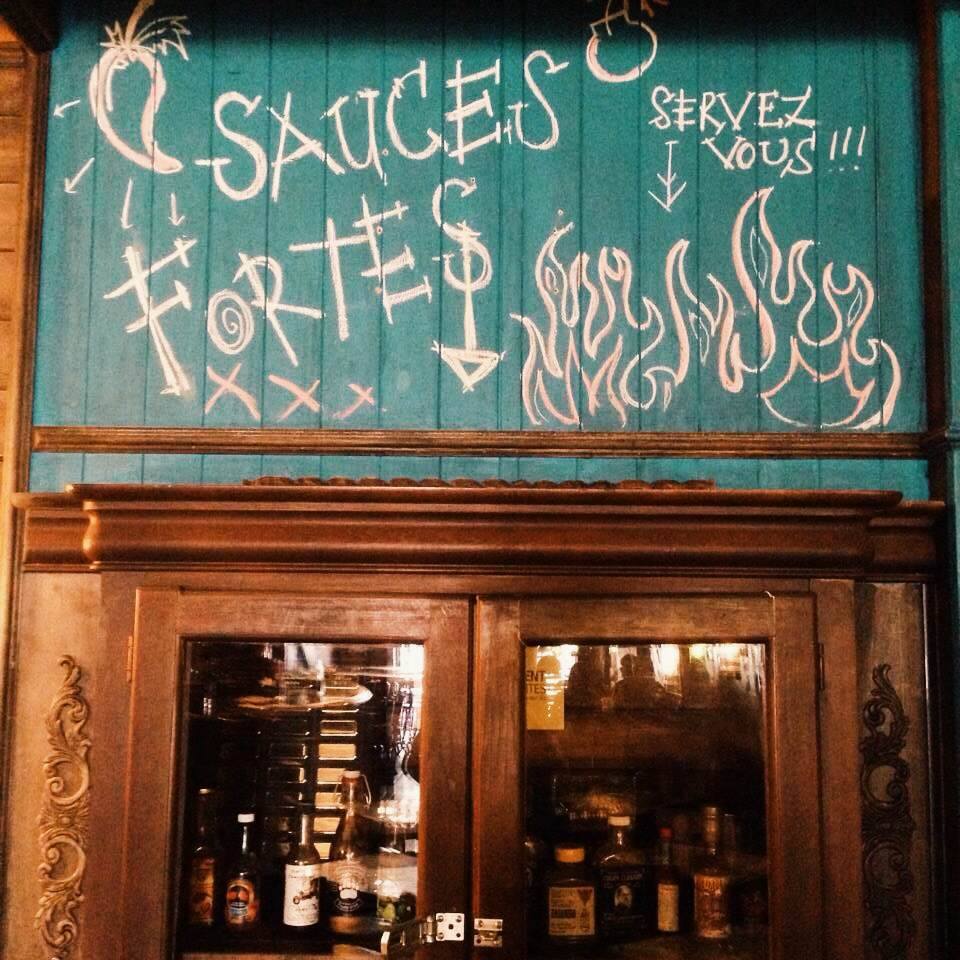 SAUCES
FORTES
XXX
SERVEZ
VOUS !!!